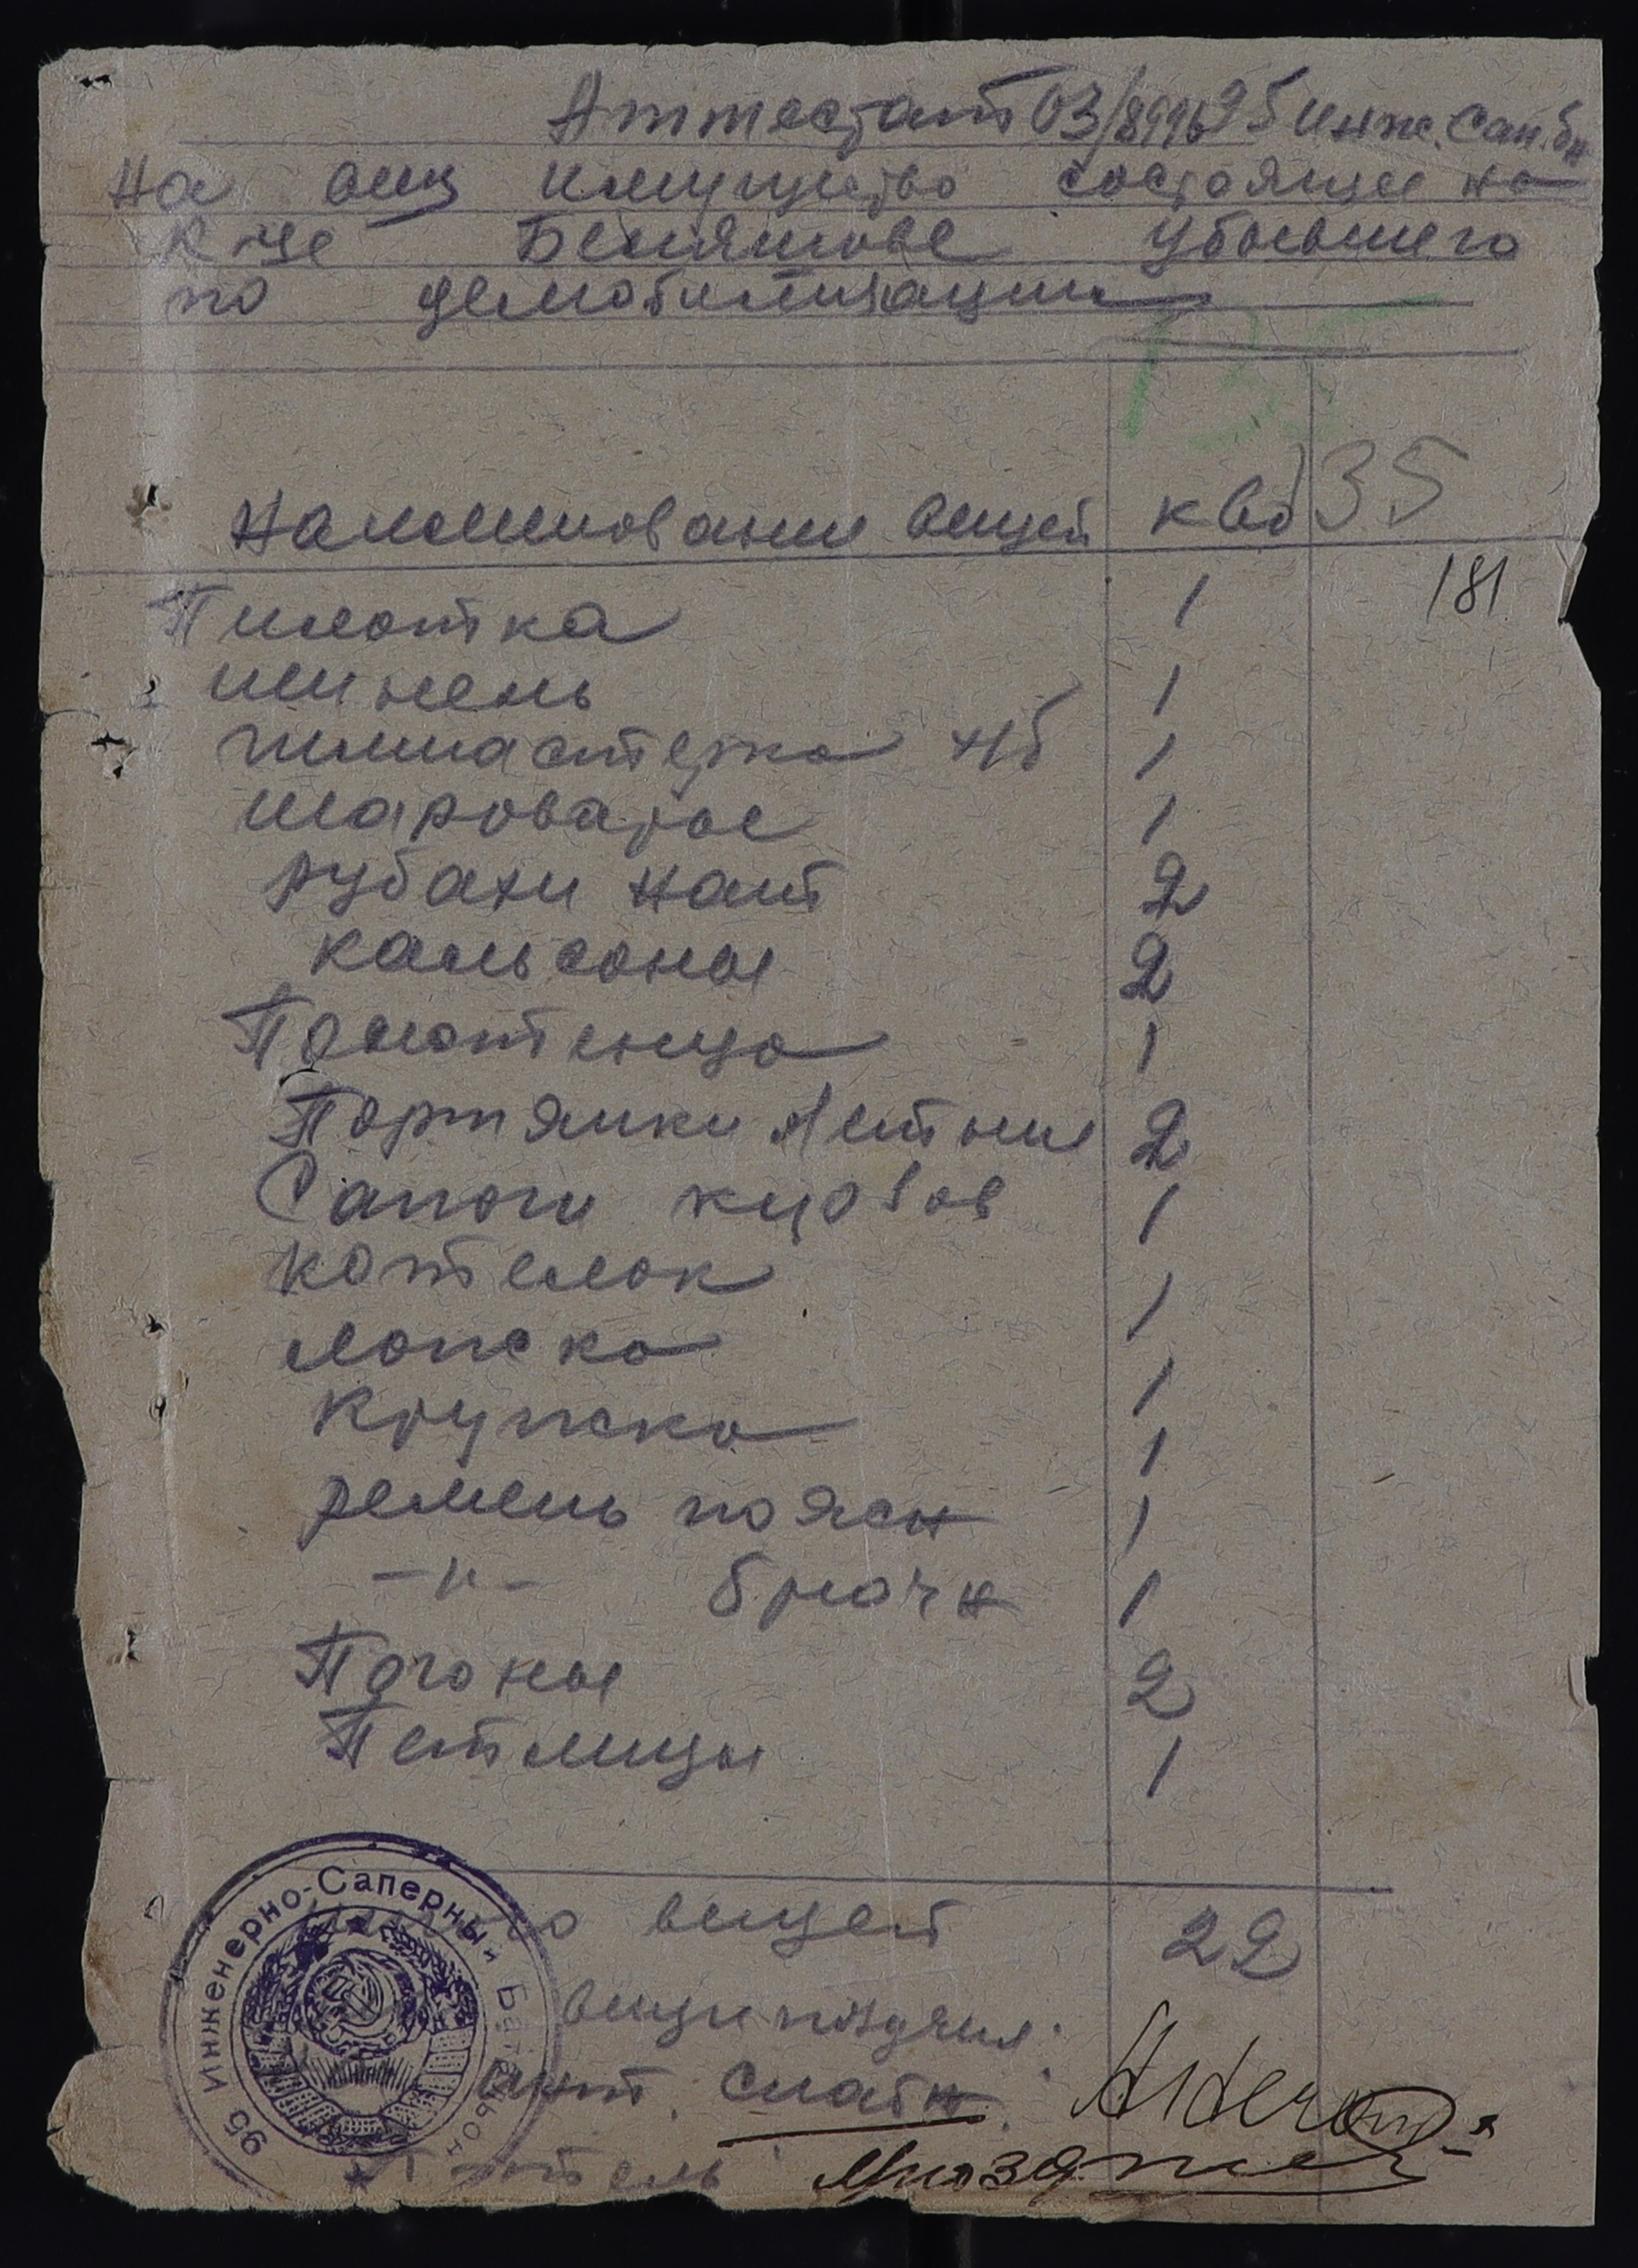 Аттестат 03/8996 95 Инж. Сап. бн
на вещ имущество состоящее на
к-це Бенямове убывшего
по демобилизации
Наименование вещей к во 35
181
Пилотка 1
шинель 1
гимнастерка нб 1
шаровары 1
рубахи нат 2
кальсоны 2
Полотенцо 1
Портянки летние 2
Сапоги кирзов 1
котелок 1
ложка 1
Кружка 1
ремень поясн 1
-"- брючн 1
Погоны 2
Петлицы 1
вещей 22
вещи
снабн.
95 Инженерно-Саперный Батальон